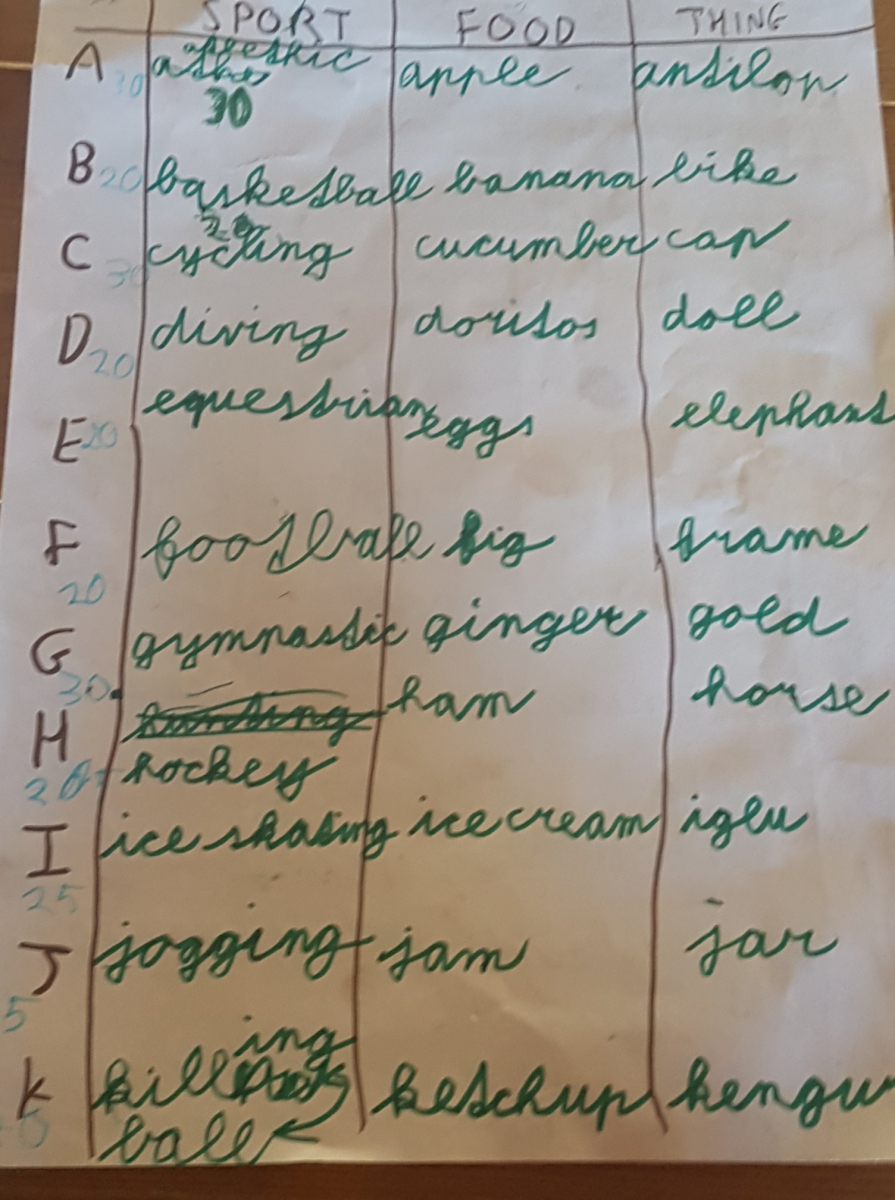 SPORT FOOD THING
A 30 athletic apple antilop
30
B 20 basketball banana bike
C 30 cycling cucumber cap
D 20 diving doritos doll
E 20 equestrian eggs elephant
F football fig frame
20
G gymnastic ginger gold
30.
H hunting ham horse
20 hockey
I ice skating ice cream iglu
25
J jogging jam jar
5
K killing ketchup kengu
ball